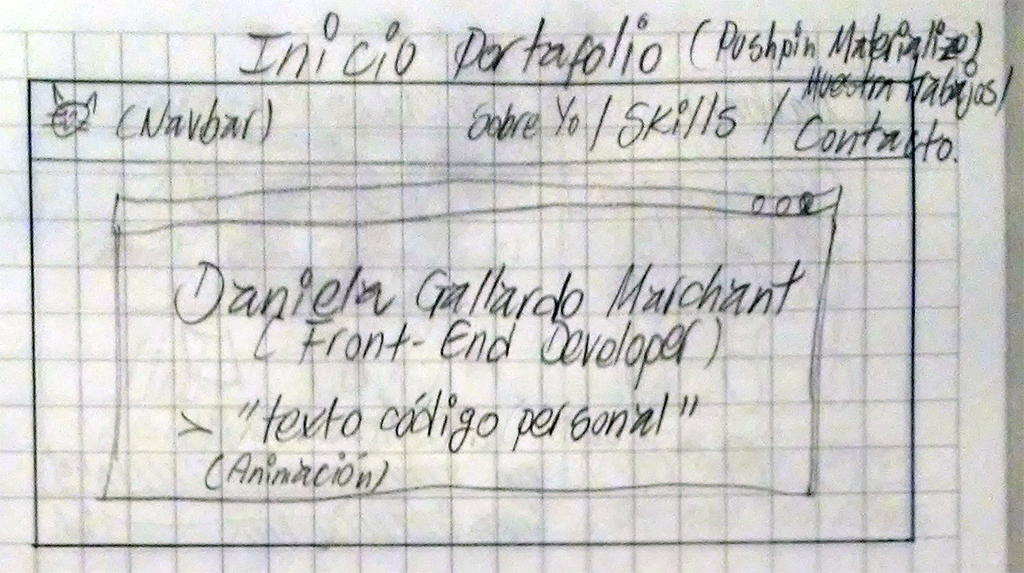 Inicio Portafolio (Pushpin Materialize)
(Navbar) Sobre Yo / Skills / Muestra trabajos /
Contacto.
Daniela Gallardo Marchant
(Front-End Developer)
> "texto código personal"
(Animación)